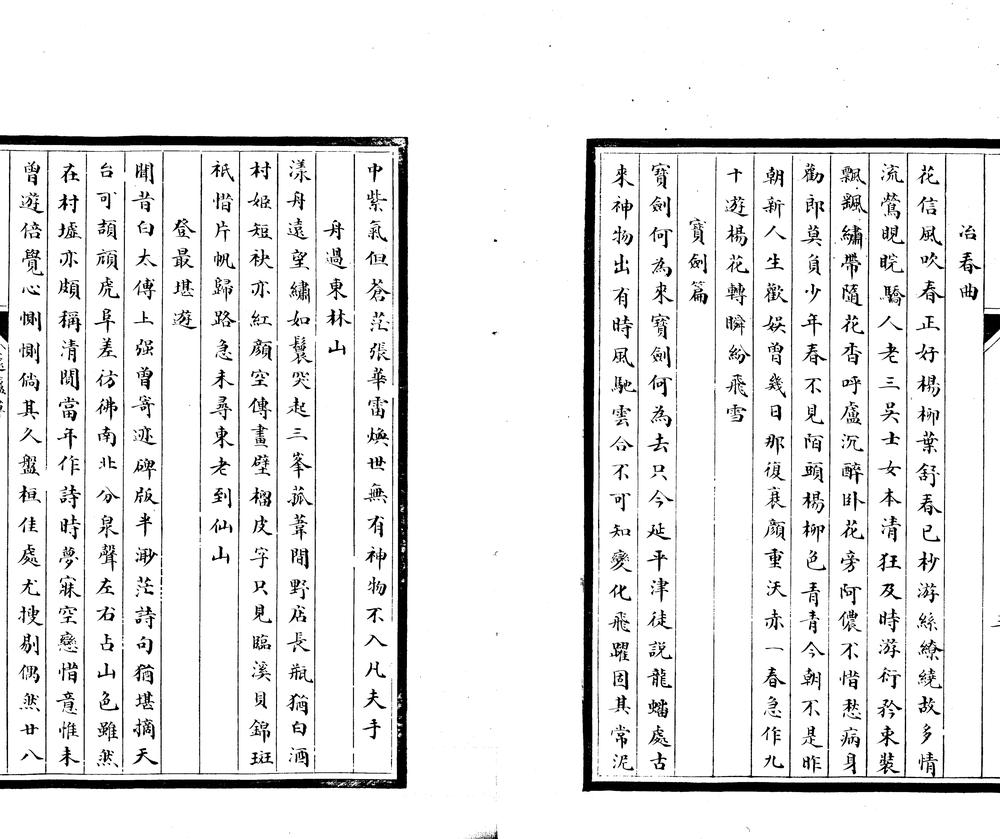 冶春曲
花信風吹春正好楊柳葉舒春已杪游絲繚繞故多情
流鶯睍睆驕人老三吳士女本清狂及時游衍矜束裝
飄颻繡帶隨花香呼盧沉醉卧花旁阿儂不惜愁病身
勸郎莫負少年春不見陌頭楊柳色青青今朝不是昨
朝新人生歡娛曾幾日那復衰顏重沃赤一春急作九
十遊楊花轉瞬紛飛雪
寶劍篇
寶劍何為來寶劍何為去只今延平津徒説龍蟠處古
來神物出有時風馳雲合不可知變化飛躍固其常泥
中紫氣但蒼茫張華雷煥世無有神物不入凡夫手
舟過東林山
漾舟遠望繡如鬟突起三峯菰葦間野店長瓶猶白酒
村姬短袂亦紅顏空傳畫壁榴皮字只見臨溪貝錦斑
祇惜片帆歸路急未尋東老到仙山
登最堪遊
聞昔白太傅上强曾寄迹碑版半渺茫詩句猶堪摘天
台可頡頏虎阜差彷彿南北分泉聲左右占山色雖然
在村墟亦頗稱清閒當年作詩時夢寐空戀惜意惟未
曾遊倍覺心惻惻倘其久盤桓佳處尤搜剔偶然廿八